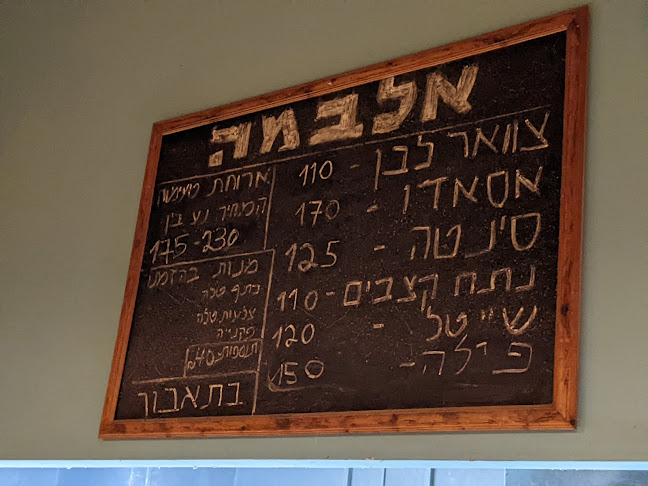 אלבמה
צוואר לבן - 110
אסאדו - 170
סינטה - 125
נתח קצבים - 110
ש״יטל - 120
פילה - 150
ארוחת טעימות
המחיר נע בין
175-230
מנות בהזמנ
כתף טלה
צלעות טלה
פקנייה
תוספות 40
בתאבון